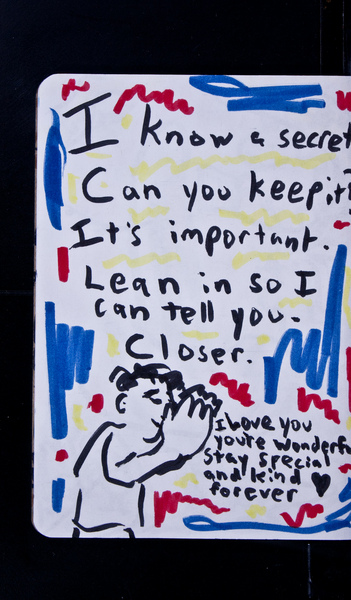 I know a secret
Can you keep it?
It's important.
Lean in so I
can tell you.
Closer.
I love you
you're wonderful
Stay special
and kind
forever